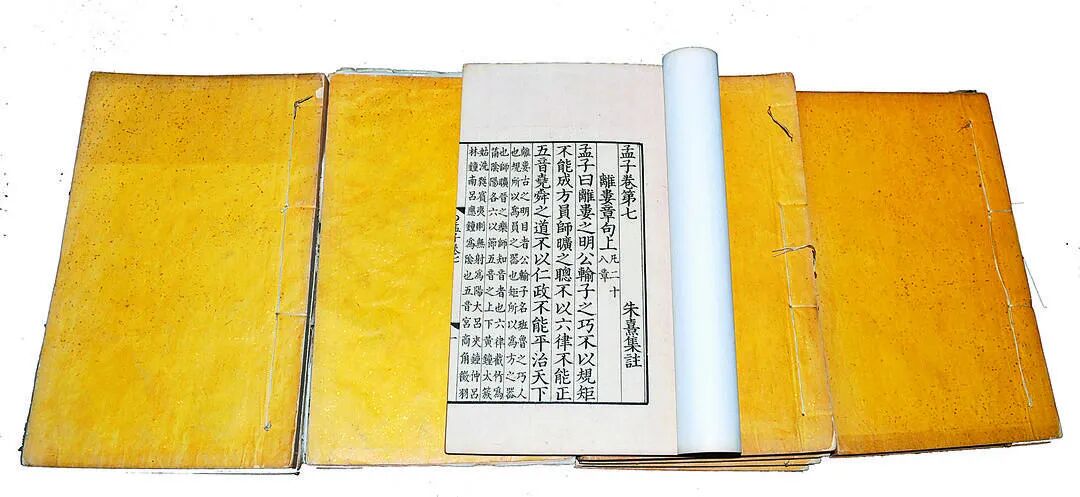 孟子卷第七 朱熹集註
離婁章句上 凡二十
八章
孟子曰離婁之明公輸子之巧不以規矩
不能成方員師曠之聰不以六律不能正
五音堯舜之道不以仁政不能平治天下
離婁古之明目者公輸子名班魯之巧人
也規所以為員之器也矩所以為方之器
也師曠晉之樂師知音者也六律截竹為
筩陰陽各六以節五音之上下黃鐘太蔟
姑洗蕤賓夷則無射為陽大呂夾鐘仲呂
林鐘南呂應鐘為陰也五音宮商角徵羽
孟子卷七